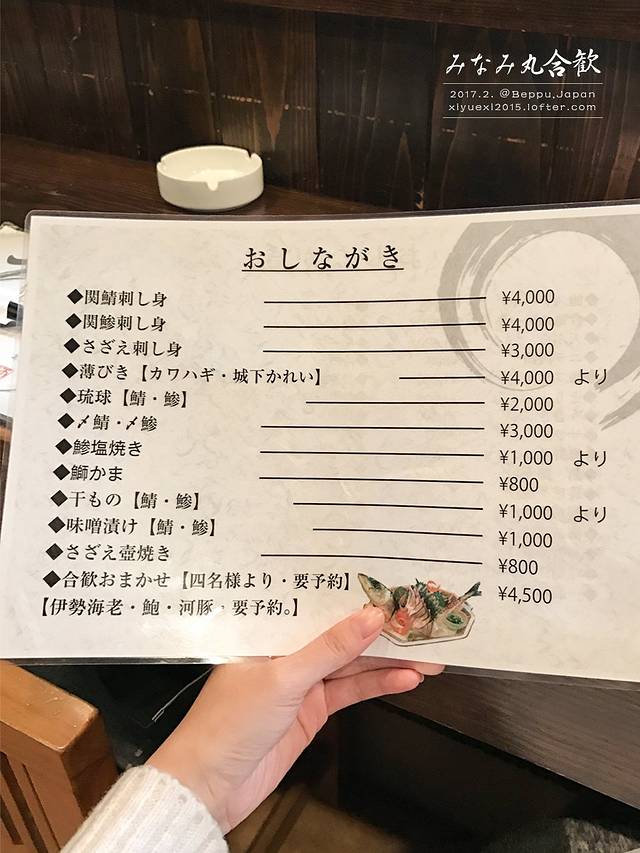 みなみ丸合歓
2017.2. @Beppu,Japan
xiyuexi2015.lofter.com
おしながき
◆関鯖刺し身 ¥4,000
◆関鯵刺し身 ¥4,000
◆さざえ刺し身 ¥3,000
◆薄びき【カワハギ・城下かれい】 ¥4,000 より
◆琉球【鯖・鯵】 ¥2,000
◆〆鯖・〆鯵 ¥3,000
◆鯵塩焼き ¥1,000 より
◆鰤かま ¥800
◆干もの【鯖・鯵】 ¥1,000 より
◆味噌漬け【鯖・鯵】 ¥1,000
◆さざえ壺焼き ¥800
◆合歓おまかせ【四名様より・要予約】 ¥4,500
【伊勢海老・鮑・河豚・要予約。】